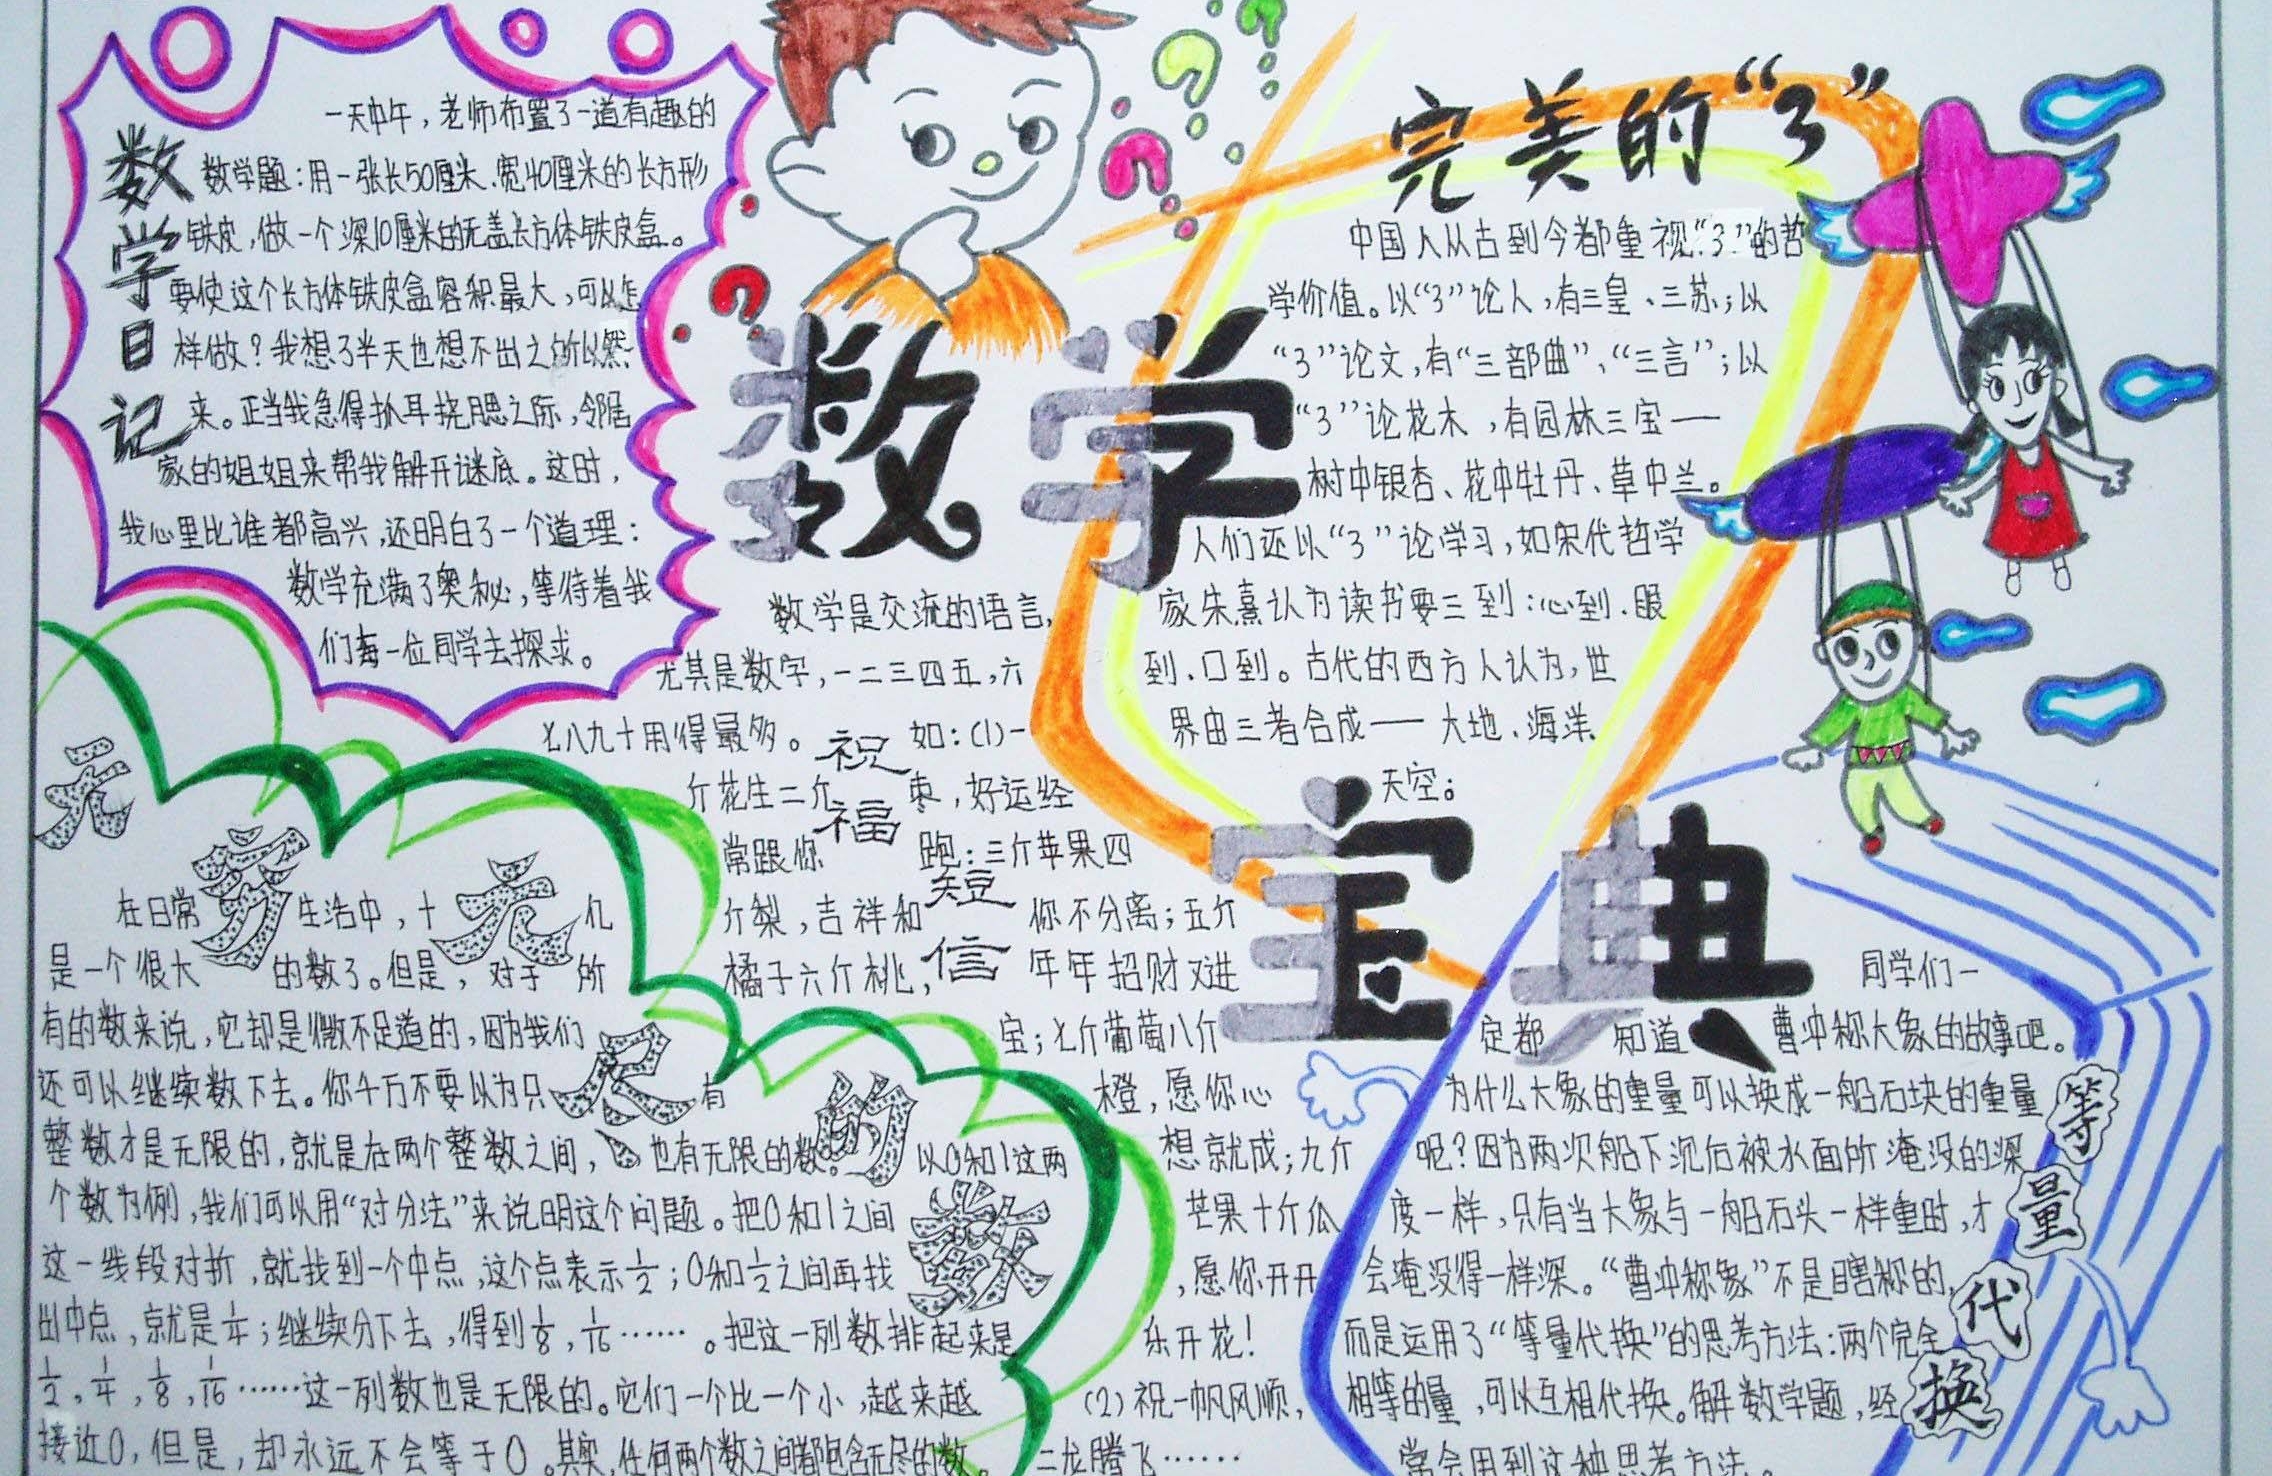 数学宝典
数学日记
一天中午，老师布置了一道有趣的
数学题：用一张长50厘米、宽40厘米的长方形
铁皮，做一个深10厘米的无盖长方体铁皮盒。
要使这个长方体铁皮盒容积最大，可以怎
样做？我想了半天也想不出之所以然
来。正当我急得抓耳挠腮之际，邻居
家的姐姐来帮我解开谜底。这时，
我心里比谁都高兴，还明白了一个道理：
数学充满了奥秘，等待着我
们每一位同学去探求。
完美的“3”
中国人从古到今都重视“3”的哲
学价值。以“3”论人，有三皇、三苏；以
“3”论文，有“三部曲”、“三言”；以
“3”论花木，有园林三宝——
树中银杏、花中牡丹、草中兰。
人们还以“3”论学习，如宋代哲学
家朱熹认为读书要三到：心到、眼
到、口到。古代的西方人认为，世
界由三者合成——大地、海洋、
天空。
祝福短信
数学是交流的语言，
尤其是数字，一二三四五，六
七八九十用得最多。如：(1)一
斤花生二斤枣，好运经
常跟你跑：三斤苹果四
斤梨，吉祥和你不分离；五斤
橘子六斤桃，年年招财又进
宝；七斤葡萄八斤
橙，愿你心
想就成；九斤
芒果十斤瓜
，愿你开开
乐开花！
(2)祝一帆风顺，
二龙腾飞……
无穷无尽的数
在日常生活中，十亿
是一个很大的数了。但是，对于所
有的数来说，它却是微不足道的，因为我们
还可以继续数下去。你千万不要以为只有
整数才是无限的，就是在两个整数之间，也有无限的数。以0和1这两
个数为例，我们可以用“对分法”来说明这个问题。把0和1之间
这一线段对折，就找到一个中点，这个点表示1/2；0和1/2之间再找
出中点，就是1/4；继续分下去，得到1/8，1/16……。把这一列数排起来是
1/2，1/4，1/8，1/16……这一列数也是无限的。它们一个比一个小，越来越
接近0，但是，却永远不会等于0。其实，任何两个数之间都包含无尽的数。
等量代换
同学们一
定都知道曹冲称大象的故事吧。
为什么大象的重量可以换成一船石块的重量
呢？因为两次船下沉后被水面所淹没的深
度一样，只有当大象与一船石头一样重时，才
会淹没得一样深。“曹冲称象”不是瞎称的，
而是运用了“等量代换”的思考方法：两个完全
相等的量，可以互相代换。解数学题，经
常会用到这种思考方法。